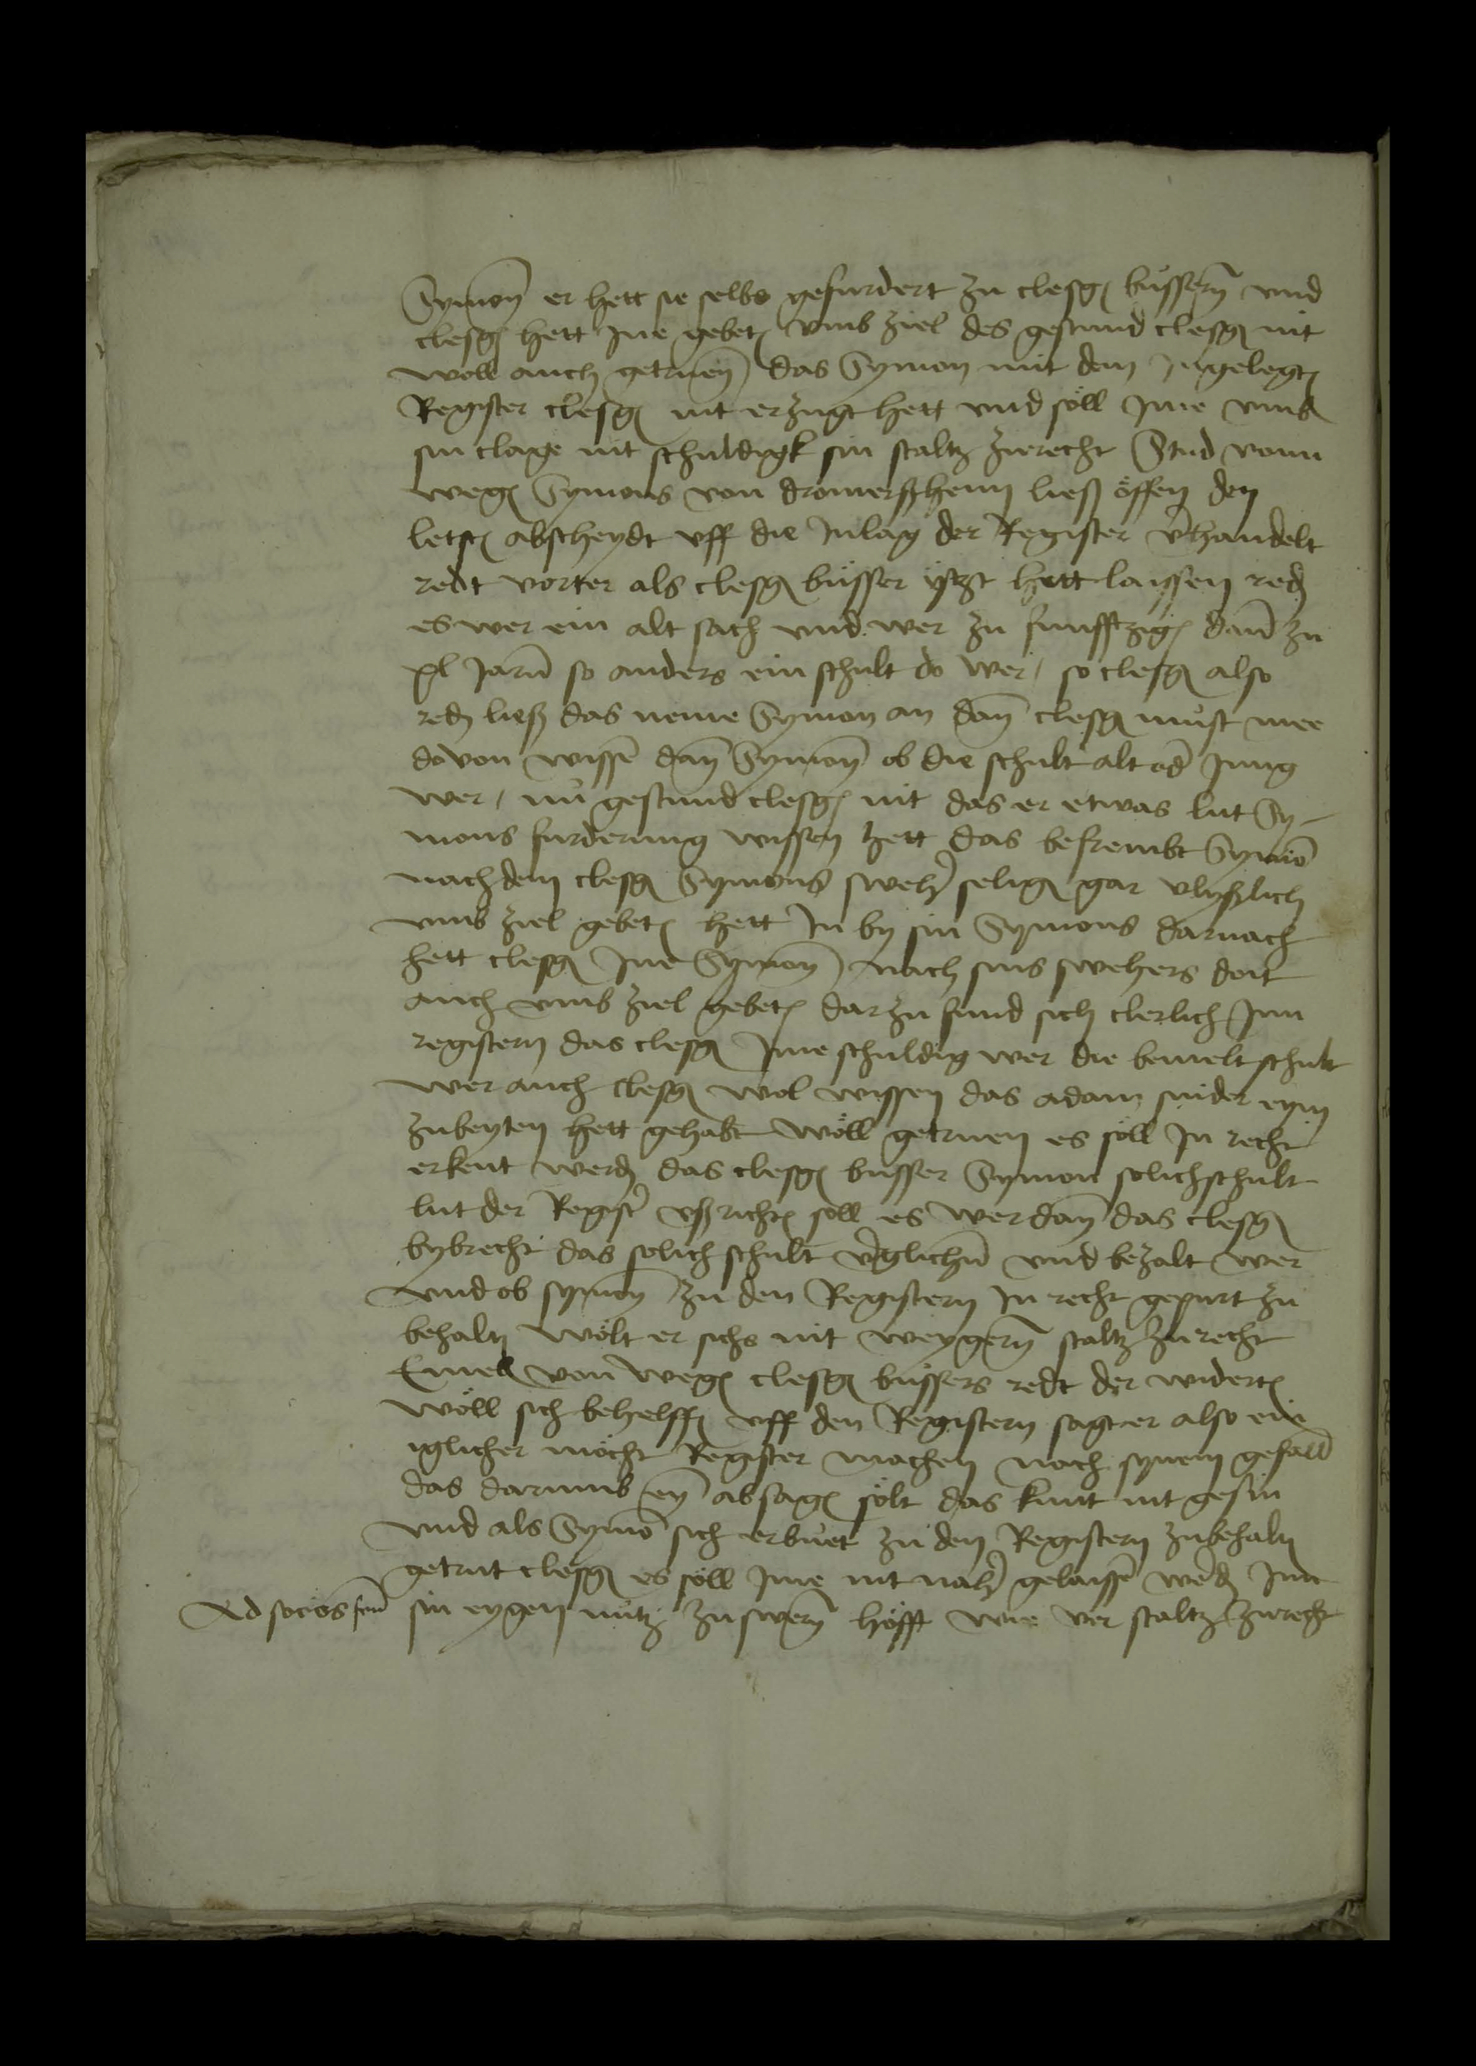 Symon er hett sie selbs gefurdert zu clesgin bussern und
clesgin hett Ine gebetten umb ziel des gestund clesgin nit
woll auch getruen das Symon mit dem Ingelegten
Register clesgin nit erzugt hett und soll Ime umb
sin clage nit schuldigk sin staltz zurecht Stud vonn
wegen Symons von dromerßheim ließ offen den
letsten abscheydt uff die Inlag der Register verhandelt
redt vorter als clesgin busser ystzt hett laissen reden
es wer ein alt sach und wer zu funfftzigen dann zu
xl Jarn so anders ein schult do wer / so clesgin also
reden ließ das neme Symon an dann clesgin must mee
davon wissen dann Symon ob die schult alt oder Jung
wer / nu gestund clesgin nit das er etwas lut Sy-
mons furderung wissen hett das befrembt Symon
nach dem clesgin Symons sweher seligen gar vlyßlich
umb ziel gebetten hett In by sin Symons darnach
hett clesgin Ine Symon nach sins swehers doit
auch umb ziel gebetten darzu fund sich clerlich Inn
registern das clesgin Ime schuldig wer die bemelt schult
wer auch clesgin wol wissen das adam snider eym
zubeyten hett gehabt woll getruen es soll In recht
erkent werden das clesgin busser Symon solich schult
lut der Register ußrichten soll es wer dann das clesgin
bybrecht das solich schult verglichenn und bezalt wer
und ob symon zu den Registern In recht gepurt zu
behalten wolt er sichs nit weygern staltz zu recht
Emel von wegen clesgin bussers redt der widerteil
woll sich behelffen uff den Registern sagt er also ein
iglicher mocht Register machen nach synem gefallen
das darumb eyn absagen solt das kunt nit gesin
und als Symon sich erbuet zu den Registern zubehalten
getrut clesgin es soll Ime nit naher gelaissen werden Inn
Ad socios
sin eygen nutz zu swern hofft wie vor staltz zu recht